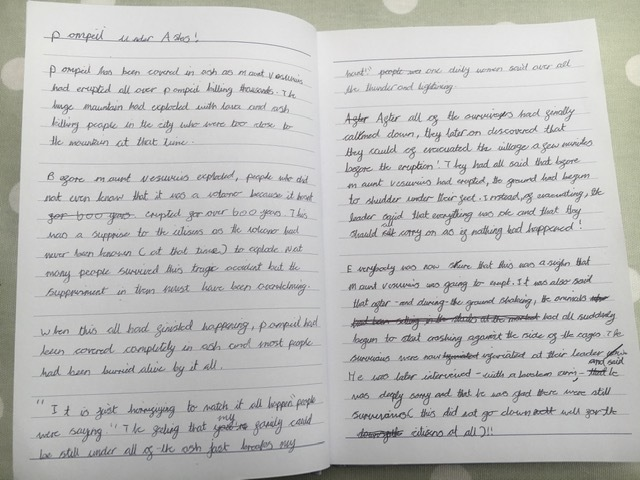 Pompeii under Ashs!
Pompeii has been covered in ash as mount Vesuvius
had erupted all over pompeii killing thousands. The
large mountain had exploded with lava and ash
killing people in the city who were too close to
the mountain at that time.
Before mount vesuvius exploded, people who did
not even know that it was a volcano because it hasnt
for 600 years erupted for over 600 years. This
was a supprise to the citisens as the volcano had
never been known (at that time) to explode. Not
many people survived this tragic accident but the
supprisment in them must have been
When this all had finished happening, pompeii had
been covered completely in ash and most people
had been burried alive by it all.
"It is just horrifying to watch it all happen" people
were saying "The feeling that my family could
be still under all of the ash just breaks my
heart!" people one dirty women said over all
the thunder and lightning.
After After all of the survivers had finally
calmed down, they later on discovered that
they could of evacuated the village a few minutes
before the eruption! They had all said that before
mount vesuvius had erupted, the ground had begun
to shudder under their feet. Instead, of evacuating, the
leader said that everything was and that they
should all carry on as if nothing had happened!
Everybody was now shure that this was a sighn that
mount vesuvius was going to erupt. It was also said
that after - and during - the ground shaking, the animals
had been sitting in the stalls at the market had all suddenly
begun to start crashing against the side of the cages. The
survivers were now infuriated at their leader
He was later interviewed - with a broken arm, - and said he
was deeply sorry and that he was glad there were still
survivers (this did not go down well for the
citisens at all)!!